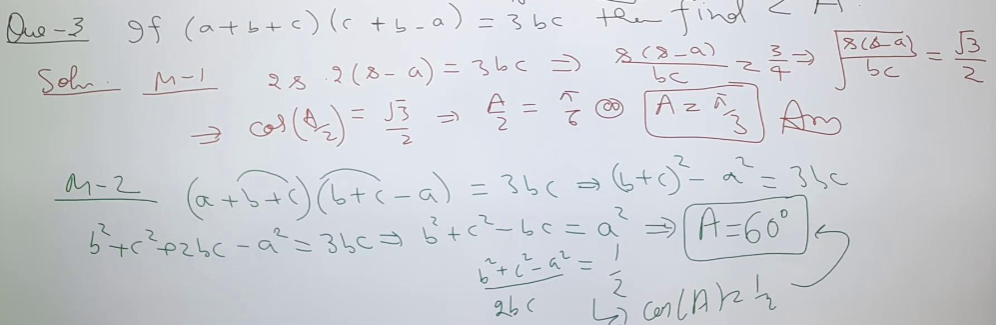 Que-3 If (a+b+c)(c+b-a) = 3bc then find < A
Soln. M-1 2s.2(s-a) = 3bc ⇒ s(s-a)/bc = 3/4 ⇒ √(s(s-a)/bc) = √3/2
⇒ cos(A/2) = √3/2 ⇒ A/2 = π/6 ∞ A = π/3 Ans
M-2 (a+b+c)(b+c-a) = 3bc ⇒ (b+c)² - a² = 3bc
b²+c²+2bc-a² = 3bc ⇒ b²+c²-bc = a² ⇒ A = 60°
(b²+c²-a²)/2bc = 1/2
↳ cos(A) = 1/2